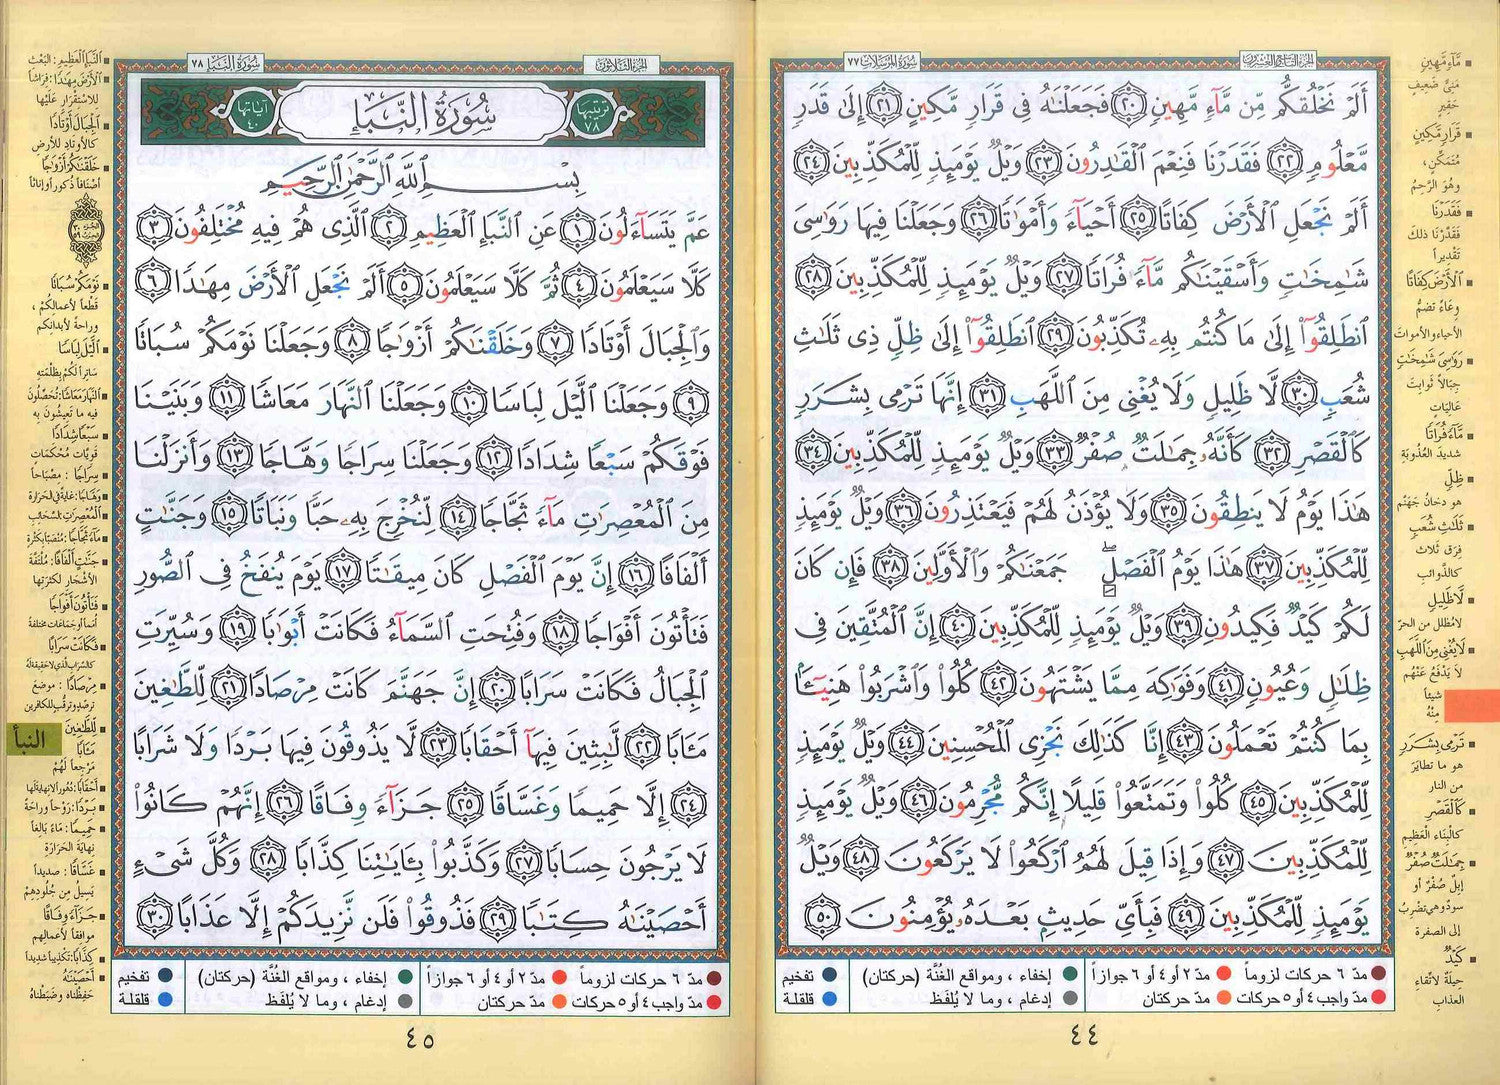 الجزء التاسع والعشرون
سورة المرسلات ٧٧
أَلَمْ نَخْلُقكُّم مِّن مَّآءٍ مَّهِينٍ ٢٠ فَجَعَلْنَٰهُ فِى قَرَارٍ مَّكِينٍ ٢١ إِلَىٰ قَدَرٍ
مَّعْلُومٍ ٢٢ فَقَدَرْنَا فَنِعْمَ ٱلْقَٰدِرُونَ ٢٣ وَيْلٌ يَوْمَئِذٍ لِّلْمُكَذِّبِينَ ٢٤
أَلَمْ نَجْعَلِ ٱلْأَرْضَ كِفَاتًا ٢٥ أَحْيَآءً وَأَمْوَٰتًا ٢٦ وَجَعَلْنَا فِيهَا رَوَٰسِىَ
شَٰمِخَٰتٍ وَأَسْقَيْنَٰكُم مَّآءً فُرَاتًا ٢٧ وَيْلٌ يَوْمَئِذٍ لِّلْمُكَذِّبِينَ ٢٨
ٱنطَلِقُوٓا۟ إِلَىٰ مَا كُنتُم بِهِۦ تُكَذِّبُونَ ٢٩ ٱنطَلِقُوٓا۟ إِلَىٰ ظِلٍّ ذِى ثَلَٰثِ
شُعَبٍ ٣٠ لَّا ظَلِيلٍ وَلَا يُغْنِى مِنَ ٱللَّهَبِ ٣١ إِنَّهَا تَرْمِى بِشَرَرٍ
كَٱلْقَصْرِ ٣٢ كَأَنَّهُۥ جِمَٰلَتٌ صُفْرٌ ٣٣ وَيْلٌ يَوْمَئِذٍ لِّلْمُكَذِّبِينَ ٣٤
هَٰذَا يَوْمُ لَا يَنطِقُونَ ٣٥ وَلَا يُؤْذَنُ لَهُمْ فَيَعْتَذِرُونَ ٣٦ وَيْلٌ يَوْمَئِذٍ
لِّلْمُكَذِّبِينَ ٣٧ هَٰذَا يَوْمُ ٱلْفَصْلِ ۖ جَمَعْنَٰكُمْ وَٱلْأَوَّلِينَ ٣٨ فَإِن كَانَ
لَكُمْ كَيْدٌ فَكِيدُونِ ٣٩ وَيْلٌ يَوْمَئِذٍ لِّلْمُكَذِّبِينَ ٤٠ إِنَّ ٱلْمُتَّقِينَ فِى
ظِلَٰلٍ وَعُيُونٍ ٤١ وَفَوَٰكِهَ مِمَّا يَشْتَهُونَ ٤٢ كُلُوا۟ وَٱشْرَبُوا۟ هَنِيٓـًٔۢا
بِمَا كُنتُمْ تَعْمَلُونَ ٤٣ إِنَّا كَذَٰلِكَ نَجْزِى ٱلْمُحْسِنِينَ ٤٤ وَيْلٌ يَوْمَئِذٍ
لِّلْمُكَذِّبِينَ ٤٥ كُلُوا۟ وَتَمَتَّعُوا۟ قَلِيلًا إِنَّكُم مُّجْرِمُونَ ٤٦ وَيْلٌ يَوْمَئِذٍ
لِّلْمُكَذِّبِينَ ٤٧ وَإِذَا قِيلَ لَهُمُ ٱرْكَعُوا۟ لَا يَرْكَعُونَ ٤٨ وَيْلٌ
يَوْمَئِذٍ لِّلْمُكَذِّبِينَ ٤٩ فَبِأَىِّ حَدِيثٍۭ بَعْدَهُۥ يُؤْمِنُونَ ٥٠
مَّآءٍ مَّهِينٍ
مَنِيٍّ ضَعِيفٍ
حَقِيرٍ
قَرَارٍ مَّكِينٍ
مُتَمَكِّنٍ،
وهُوَ الرَّحِمُ
فَقَدَرْنَا
فَقَدَّرْنَا ذلكَ
تَقْدِيراً
ٱلْأَرْضَ كِفَاتًا
وِعَاءً تضمُّ
الأحياء والأموات
رَوَٰسِىَ شَٰمِخَٰتٍ
جِبَالاً ثَوابِتَ
عَالِيَاتٍ
مَّآءً فُرَاتًا
شديدَ العُذُوبَةِ
ظِلٍّ
هو دخانُ جَهَنَّم
ثَلَٰثِ شُعَبٍ
فِرَقٍ ثلاث
كالذَّوائبِ
لَّا ظَلِيلٍ
لا مُظلِلٍ من الحرِّ
لَا يُغْنِى مِنَ ٱللَّهَبِ
لَا يَدْفَعُ عَنْهُم
شيئاً
مِنْهُ
تَرْمِى بِشَرَرٍ
هو ما تطايَرَ
من النار
كَٱلْقَصْرِ
كالبِنَاءِ العَظِيمِ
جِمَٰلَتٌ صُفْرٌ
إبلٌ صُفْرٌ أو
سودٌ وهي تضرِبُ
إلى الصفرة
كَيْدٌ
حِيلَةٌ لاتِّقاءِ
العذاب
مدّ ٦ حركات لزوماً
مدّ ٢ أو ٤ أو ٦ جوازاً
إخفاء ، ومواقع الغُنَّة (حركتان)
تفخيم
مدّ واجب ٤ أو ٥ حركات
مدّ حركتان
إدغام ، وما لا يُلفَظ
قلقلة
٤٤
الجزء الثلاثون
سورة النبإ ٧٨
ترتيبها ٧٨
سُورَةُ النَّبَإِ
آياتها ٤٠
بِسْمِ ٱللَّهِ ٱلرَّحْمَٰنِ ٱلرَّحِيمِ
عَمَّ يَتَسَآءَلُونَ ١ عَنِ ٱلنَّبَإِ ٱلْعَظِيمِ ٢ ٱلَّذِى هُمْ فِيهِ مُخْتَلِفُونَ ٣
كَلَّا سَيَعْلَمُونَ ٤ ثُمَّ كَلَّا سَيَعْلَمُونَ ٥ أَلَمْ نَجْعَلِ ٱلْأَرْضَ مِهَٰدًا ٦
وَٱلْجِبَالَ أَوْتَادًا ٧ وَخَلَقْنَٰكُمْ أَزْوَٰجًا ٨ وَجَعَلْنَا نَوْمَكُمْ سُبَاتًا
٩ وَجَعَلْنَا ٱلَّيْلَ لِبَاسًا ١٠ وَجَعَلْنَا ٱلنَّهَارَ مَعَاشًا ١١ وَبَنَيْنَا
فَوْقَكُمْ سَبْعًا شِدَادًا ١٢ وَجَعَلْنَا سِرَاجًا وَهَّاجًا ١٣ وَأَنزَلْنَا
مِنَ ٱلْمُعْصِرَٰتِ مَآءً ثَجَّاجًا ١٤ لِّنُخْرِجَ بِهِۦ حَبًّا وَنَبَاتًا ١٥ وَجَنَّٰتٍ
أَلْفَافًا ١٦ إِنَّ يَوْمَ ٱلْفَصْلِ كَانَ مِيقَٰتًا ١٧ يَوْمَ يُنفَخُ فِى ٱلصُّورِ
فَتَأْتُونَ أَفْوَاجًا ١٨ وَفُتِحَتِ ٱلسَّمَآءُ فَكَانَتْ أَبْوَٰبًا ١٩ وَسُيِّرَتِ
ٱلْجِبَالُ فَكَانَتْ سَرَابًا ٢٠ إِنَّ جَهَنَّمَ كَانَتْ مِرْصَادًا ٢١ لِّلطَّٰغِينَ
مَـَٔابًا ٢٢ لَّٰبِثِينَ فِيهَآ أَحْقَابًا ٢٣ لَّا يَذُوقُونَ فِيهَا بَرْدًا وَلَا شَرَابًا
٢٤ إِلَّا حَمِيمًا وَغَسَّاقًا ٢٥ جَزَآءً وِفَاقًا ٢٦ إِنَّهُمْ كَانُوا۟
لَا يَرْجُونَ حِسَابًا ٢٧ وَكَذَّبُوا۟ بِـَٔايَٰتِنَا كِذَّابًا ٢٨ وَكُلَّ شَىْءٍ
أَحْصَيْنَٰهُ كِتَٰبًا ٢٩ فَذُوقُوا۟ فَلَن نَّزِيدَكُمْ إِلَّا عَذَابًا ٣٠
النَّبَإِ الْعَظِيمِ: البَعْثِ
الْأَرْضَ مِهَٰدًا: فِرَاشاً
للاستقرار عَلَيْها
الْجِبَالَ أَوْتَادًا
كالأوتادِ للأرضِ
خَلَقْنَٰكُمْ أَزْوَٰجًا
أصْنافاً ذُكوراً وإناثاً
نَوْمَكُمْ سُبَاتًا
قَطْعاً لأعمالِكُمْ،
وراحةً لأبدانِكم
الَّيْلَ لِبَاسًا
ساتراً لكُمْ بِظُلْمَتِهِ
النَّهَارَ مَعَاشًا: تُحَصِّلُونَ
فيه ما تَعِيشُونَ بِهِ
سَبْعًا شِدَادًا
قَوِيَّات مُحْكَمَات
سِرَاجًا : مِصْبَاحاً
وَهَّاجًا: غايةً في الحَرَارة
الْمُعْصِرَٰتِ: السَّحَائِبِ
مَآءً ثَجَّاجًا: مُنْصَبّاً بكثرة
جَنَّٰتٍ أَلْفَافًا: مُلْتَفَّةَ
الأشجارِ لكثرتِها
فَتَأْتُونَ أَفْوَاجًا
أمماً أو جماعات مختلفة
فَكَانَتْ سَرَابًا
كالسَّراب الذي لا حقيقة لهُ
مِرْصَادًا : موضعَ
ترصُّدٍ وترقُّبٍ للكافرين
لِّلطَّٰغِينَ
مَـَٔابًا
مَرْجِعاً لَهُمْ
النبأ
أَحْقَابًا: دُهُوراً لا نهاية لَها
بَرْدًا: رَوْحاً وراحَةً
حَمِيمًا: مَاءً بَالِغاً
نِهايَةَ الحَرَارَةِ
غَسَّاقًا: صَديداً
يَسيلُ مِن جُلُودِهِمْ
جَزَآءً وِفَاقًا
موافقاً لأعمالِهم
كِذَّابًا: تكذيباً شديداً
أَحْصَيْنَٰهُ
حَفِظْناه وضَبَطْناهُ
مدّ ٦ حركات لزوماً
مدّ ٢ أو ٤ أو ٦ جوازاً
إخفاء ، ومواقع الغُنَّة (حركتان)
تفخيم
مدّ واجب ٤ أو ٥ حركات
مدّ حركتان
إدغام ، وما لا يُلفَظ
قلقلة
٤٥